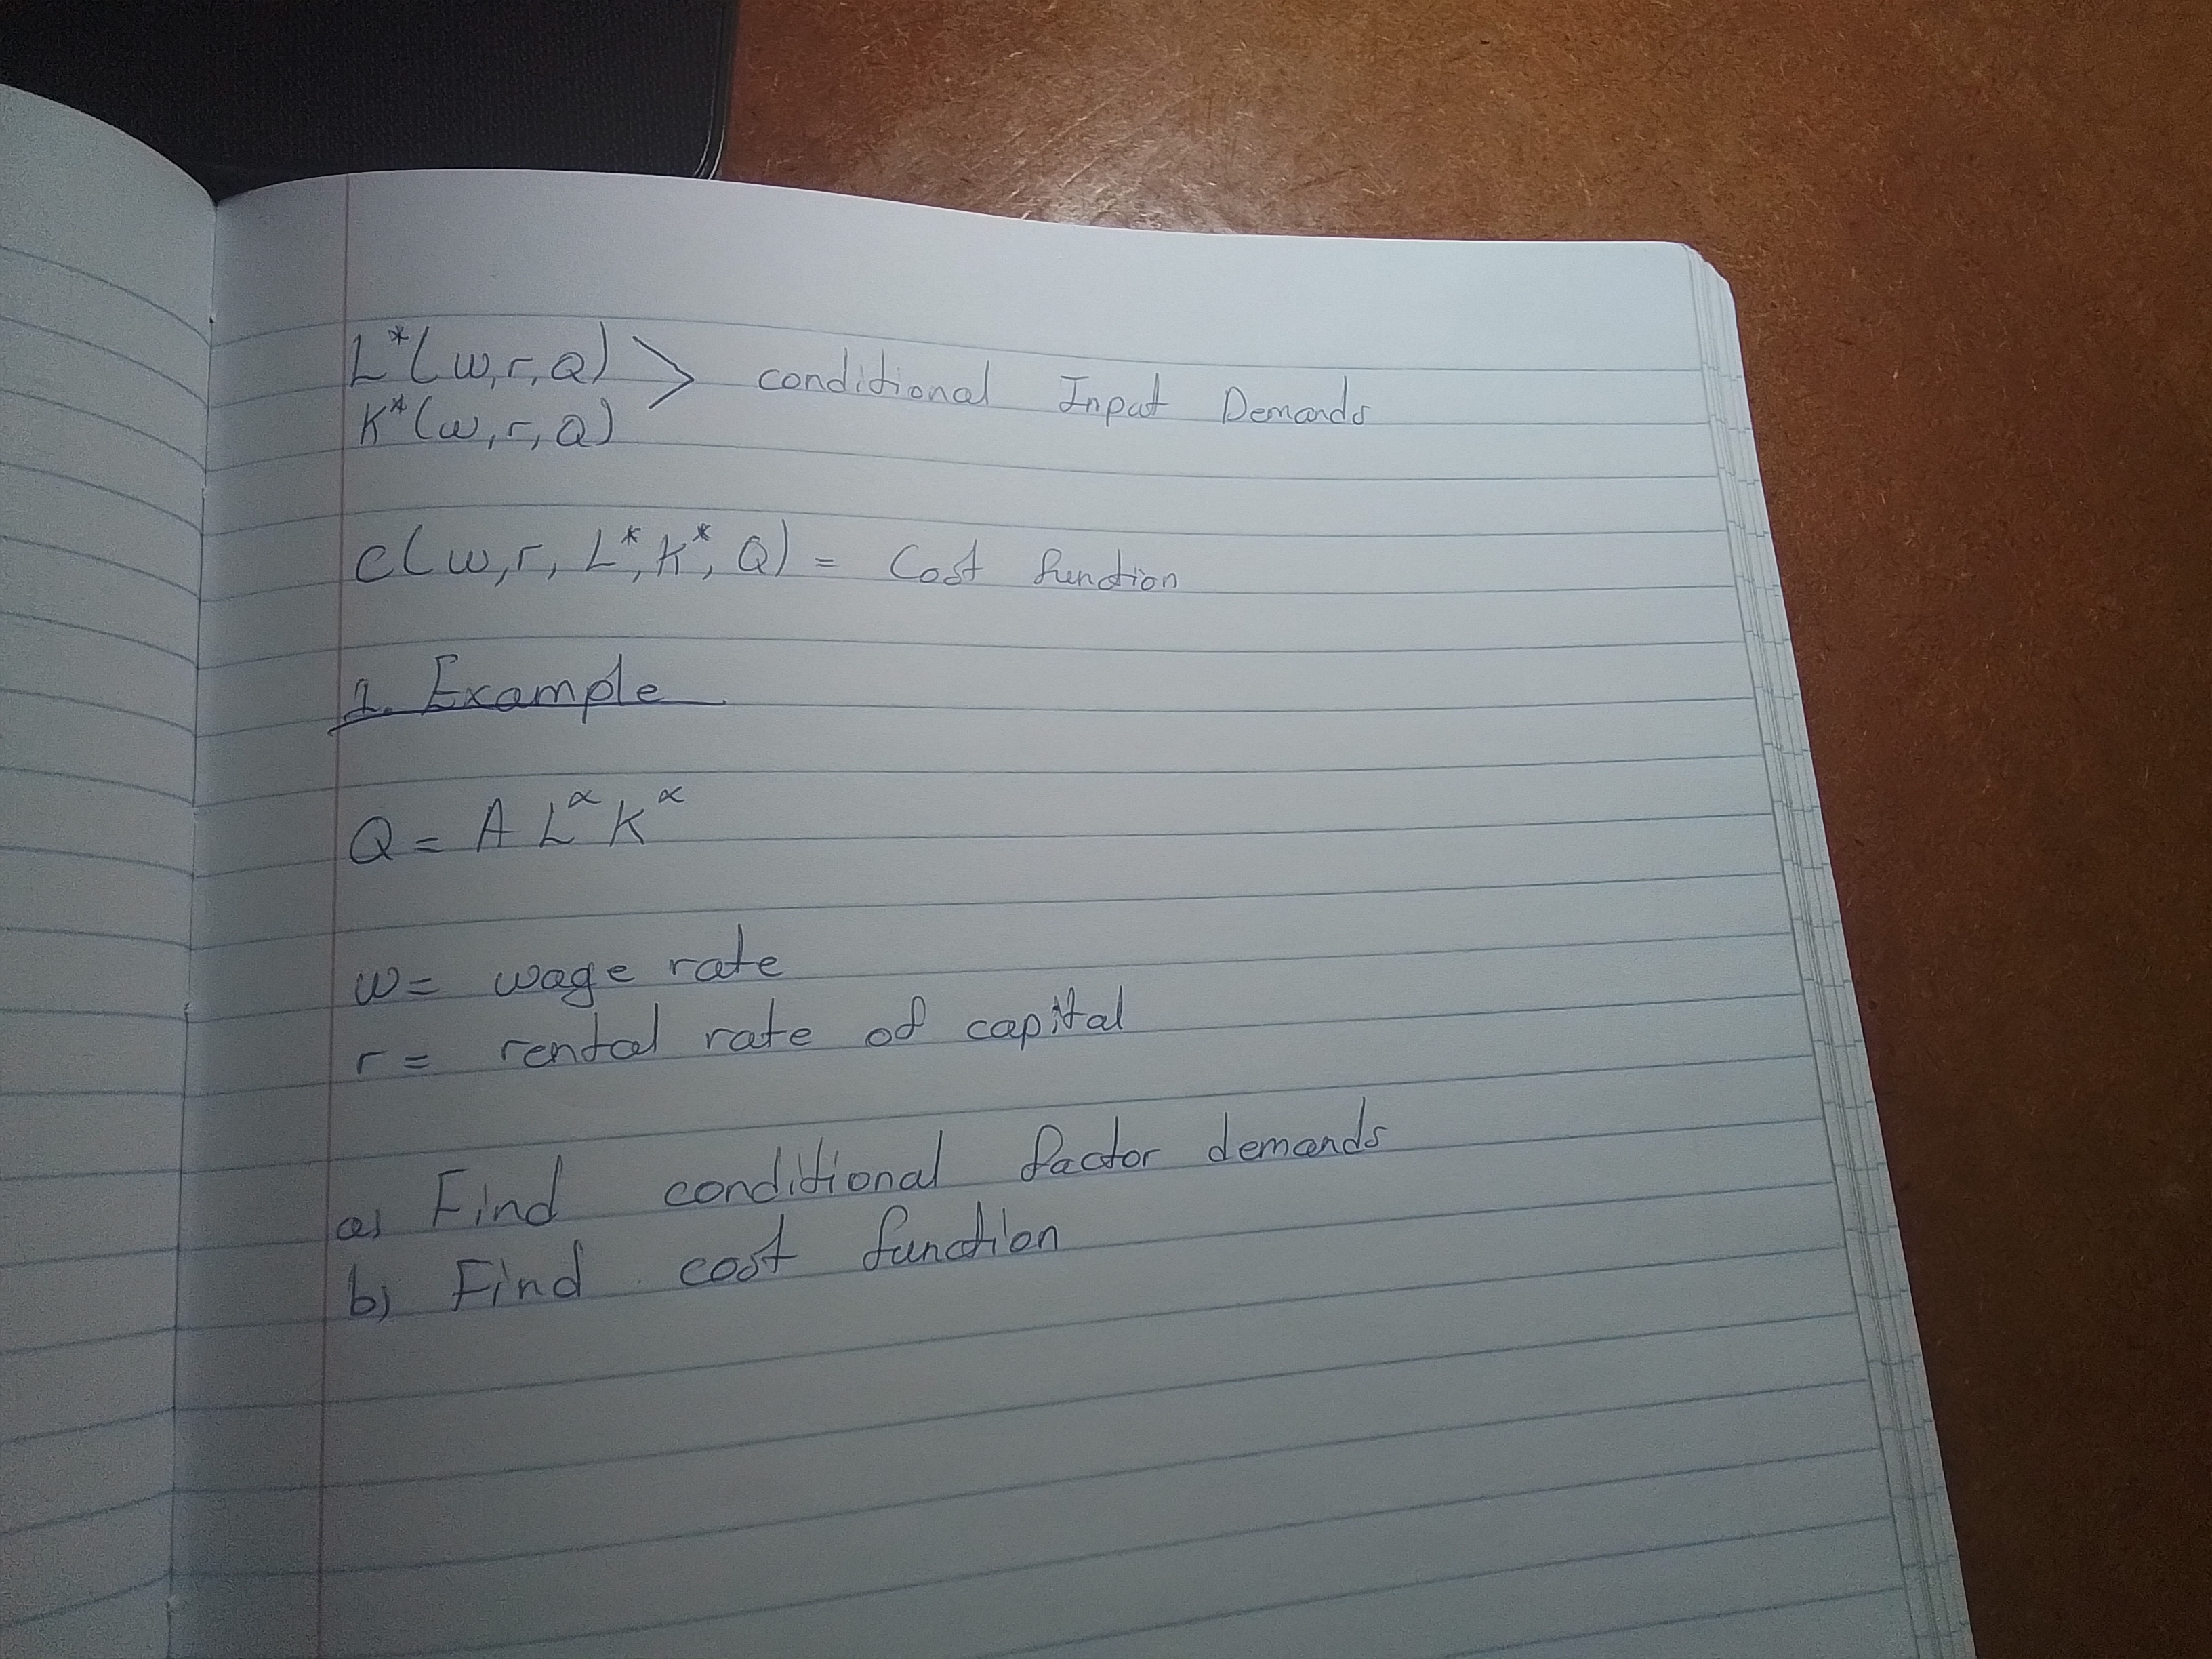 L*(w,r,Q) > conditional Input Demands
K*(w,r,Q)
c(w,r, L*,K*, Q) = Cost function
1. Example
Q = A L^α K^α
w = wage rate
r = rental rate of capital
a) Find conditional factor demands
b) Find cost function